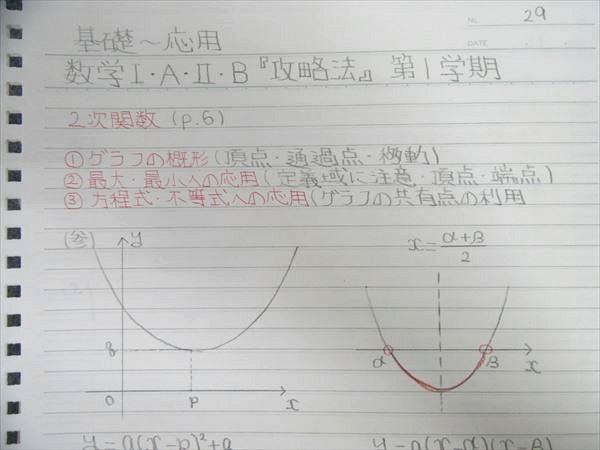 NO. 29
DATE
基礎～応用
数学Ⅰ・A・Ⅱ・B『攻略法』 第1学期
2次関数 (p.6)
① グラフの概形(頂点・通過点・極動)
② 最大・最小への応用(定義域に注意・頂点・端点)
③ 方程式・不等式への応用(グラフの共有点の利用
(参)
y
x = α+β/2
q
α
β
x
O
p
x
y = a(x-p)²+q
y = a(x-α)(x-β)